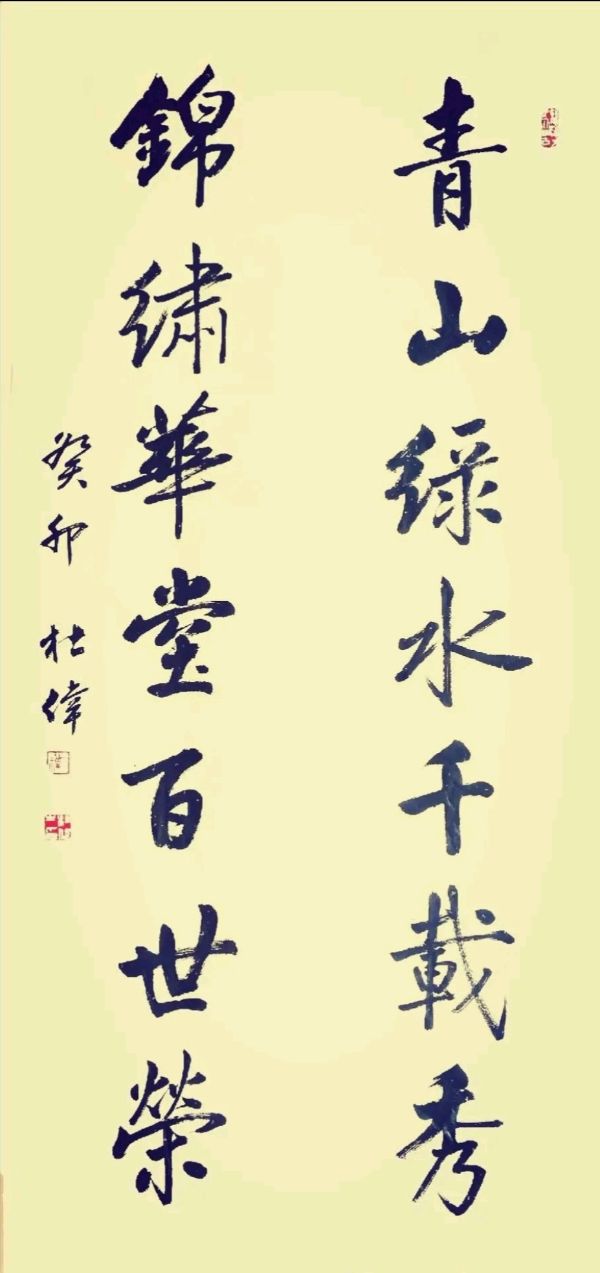 青山綠水千載秀
錦繡華堂百世榮
癸卯 杜偉